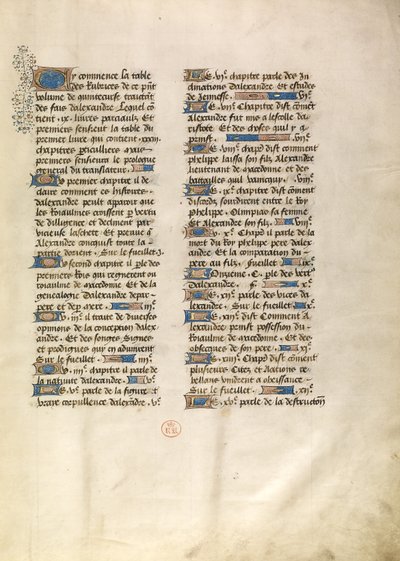 Cy commence la table
des Rubrices de ce pñt
volume de quintecurse traictāt
des fais dalexandre Lequel cō
tient .ix. livres parciaulx Et
premiers senfieut la table du
premier livre qui contient .xxiii.
chapitres particuliers Et
premiers senfieura le prologue
general du translateur
Ou premier chapitre il de
claire comment es histoires
dalexandre peult apparoir que
les Roiaulmes croissent par vertu
de dilligence et declinent par
vicieuse laschete Et
Alexandre conquist toute la
partie dorient . Sur le fueillet .J.
Ou second chapitre il ple des
premiers Rois qui regnerent ou
roiaulme de macedonne Et de la
genealogie dalexandre de par
pere et de par mere . iiij.
Ou .iij. il traite de diverses
opinions de la conception dalex
andre . Et des songes Signes
et prodigues qui en advindrent
Sur le fueillet . iiij.
Ou .iiij. chapitre il parle de
la nativite dalexandre . v.
Le .v. parle de la figure et
vraye corpullence dalexandre . v.
Le .vj. chapitre parle des In
clinations dalexandre Et estudes
de Jennesse . vij.
Le .vij. Chapitre dist cōmēt
Alexandre fut mis a lescolle da
ristote Et des choses quil y a
prinst . viij.
Le .viij. chapr̄e dist comment
phelippe laissa son filz Alexandre
lieutenant de macedonne et des
batailles quil vainquy . viij.
Le .ix. chapitre dist cōment
discorde sourdirent entre le Roy
phelippe . Olimpias sa femme
Et Alexandre son filz . viij.
Le .x. Chapr̄e il parle de la
mort du Roy phelippe pere dalex
andre Et la comparation du
pere au filz . fueillet . ix.
Onzieme . C. ple des vert9
dalexandre . F . ix.
Le .xij. parle des vices da
lexandre . Sur le fueillet . x.
Le .xiij. dist Comment A
lexandre prinst possession du
Roiaulme de macedonne . Et des
obseques de son pere . xj.
Le .xiiij. Chapr̄e dist cōment
pluiseurs Citez et nacions re
bellans vindrent a obeissance
Sur le fueillet . xj.
Le .xv. parle de la destruction